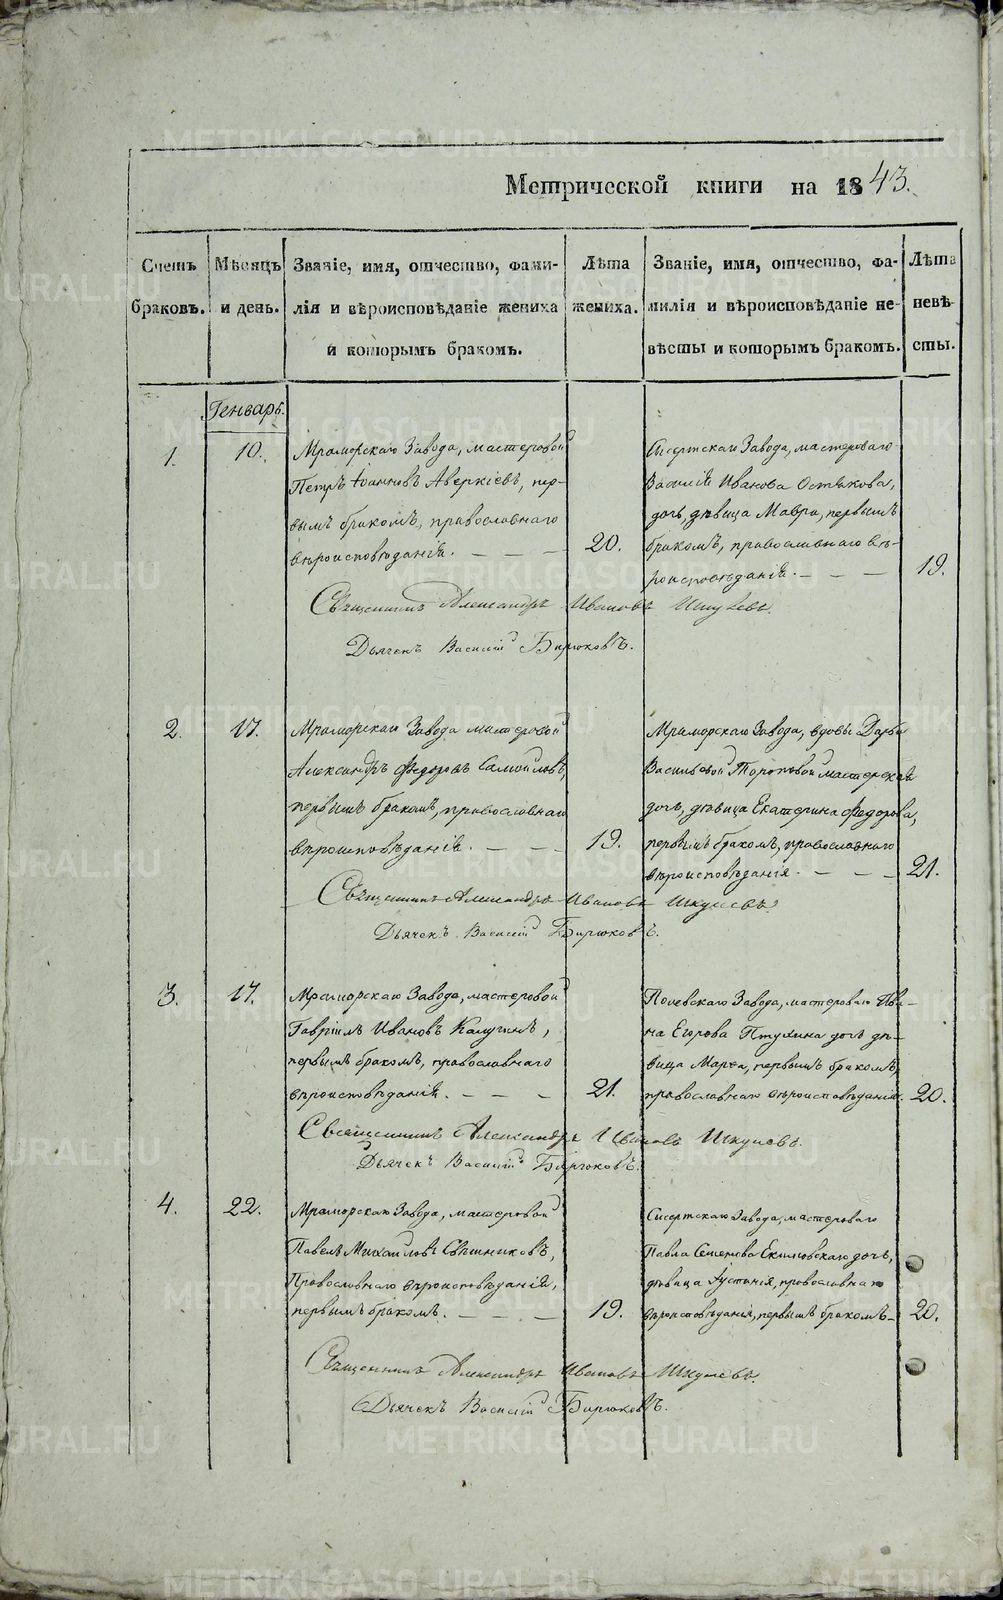 Метрической книги на 1843.
Счетъ браковъ.
Мѣсяцъ и день.
Званіе, имя, отчество, фами-
лія и вѣроисповѣданіе жениха
и которымъ бракомъ.
Лѣта жениха.
Званіе, имя, отчество, фа-
милія и вѣроисповѣданіе не-
вѣсты и которымъ бракомъ.
Лѣта невѣ-
сты.
Генварь.
1.
10.
Мраморскаго Завода, мастеровой
Петръ Іоанновъ Аверкіевъ, пер-
вымъ бракомъ, православнаго
вѣроисповѣданія.
20.
Сысертскаго Завода, мастероваго
Василія Иванова Остякова,
дочь, дѣвица Мавра, первымъ
бракомъ, православнаго вѣ-
роисповѣданія.
19.
Священникъ Александръ Ивановъ
Дьячекъ Василій Бирюковъ.
2.
17.
Мраморскаго Завода мастеровой
Александръ Федоровъ Самойловъ,
первымъ бракомъ, православнаго
вѣроисповѣданія.
19.
Мраморскаго Завода, вдовы Дарьи
Васильевой Тороповой мастерской
дочь, дѣвица Екатерина Федорова,
первымъ бракомъ, православнаго
вѣроисповѣданія.
21.
Священникъ Александръ Ивановъ
Дьячекъ Василій Бирюковъ.
3.
17.
Мраморскаго Завода, мастеровой
Гавріилъ Ивановъ Калугинъ,
первымъ бракомъ, православнаго
вѣроисповѣданія.
21.
Полевскаго Завода, мастероваго Ива-
на Егорова Птухина дочь дѣ-
вица Марѳа, первымъ бракомъ,
православнаго вѣроисповѣданія.
20.
Священникъ Александръ Ивановъ
Дьячекъ Василій Бирюковъ.
4.
22.
Мраморскаго Завода, мастеровой
Павелъ Михайловъ Свѣшниковъ,
Православнаго вѣроисповѣданія,
первымъ бракомъ.
19.
Сысертскаго Завода, мастероваго
Павла Семенова дочь,
дѣвица православнаго
вѣроисповѣданія, первымъ бракомъ
20.
Священникъ Александръ Ивановъ
Дьячекъ Василій Бирюковъ.
METRIKI.GASO-URAL.RU